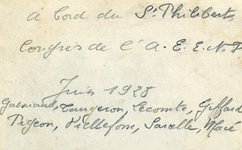 à bord du St Philibert
Congrès de l'A. E. E. N. F.
Juin 1928
Tangeron, Lecomte, Giffard
Pigeon, Piellefom, Sarelle, Macé